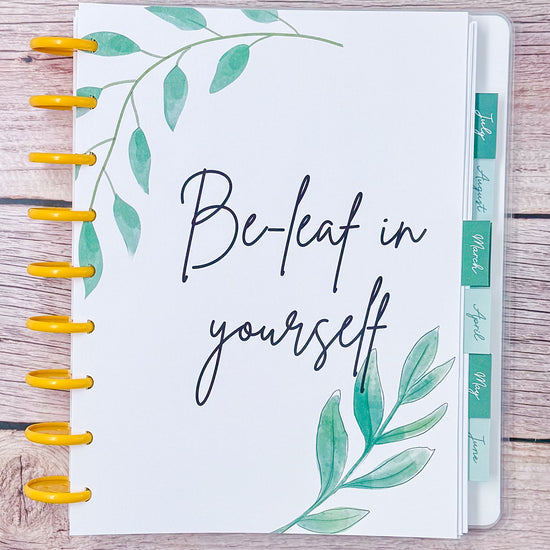 Be-leaf in
yourself
July
August
March
April
May
June